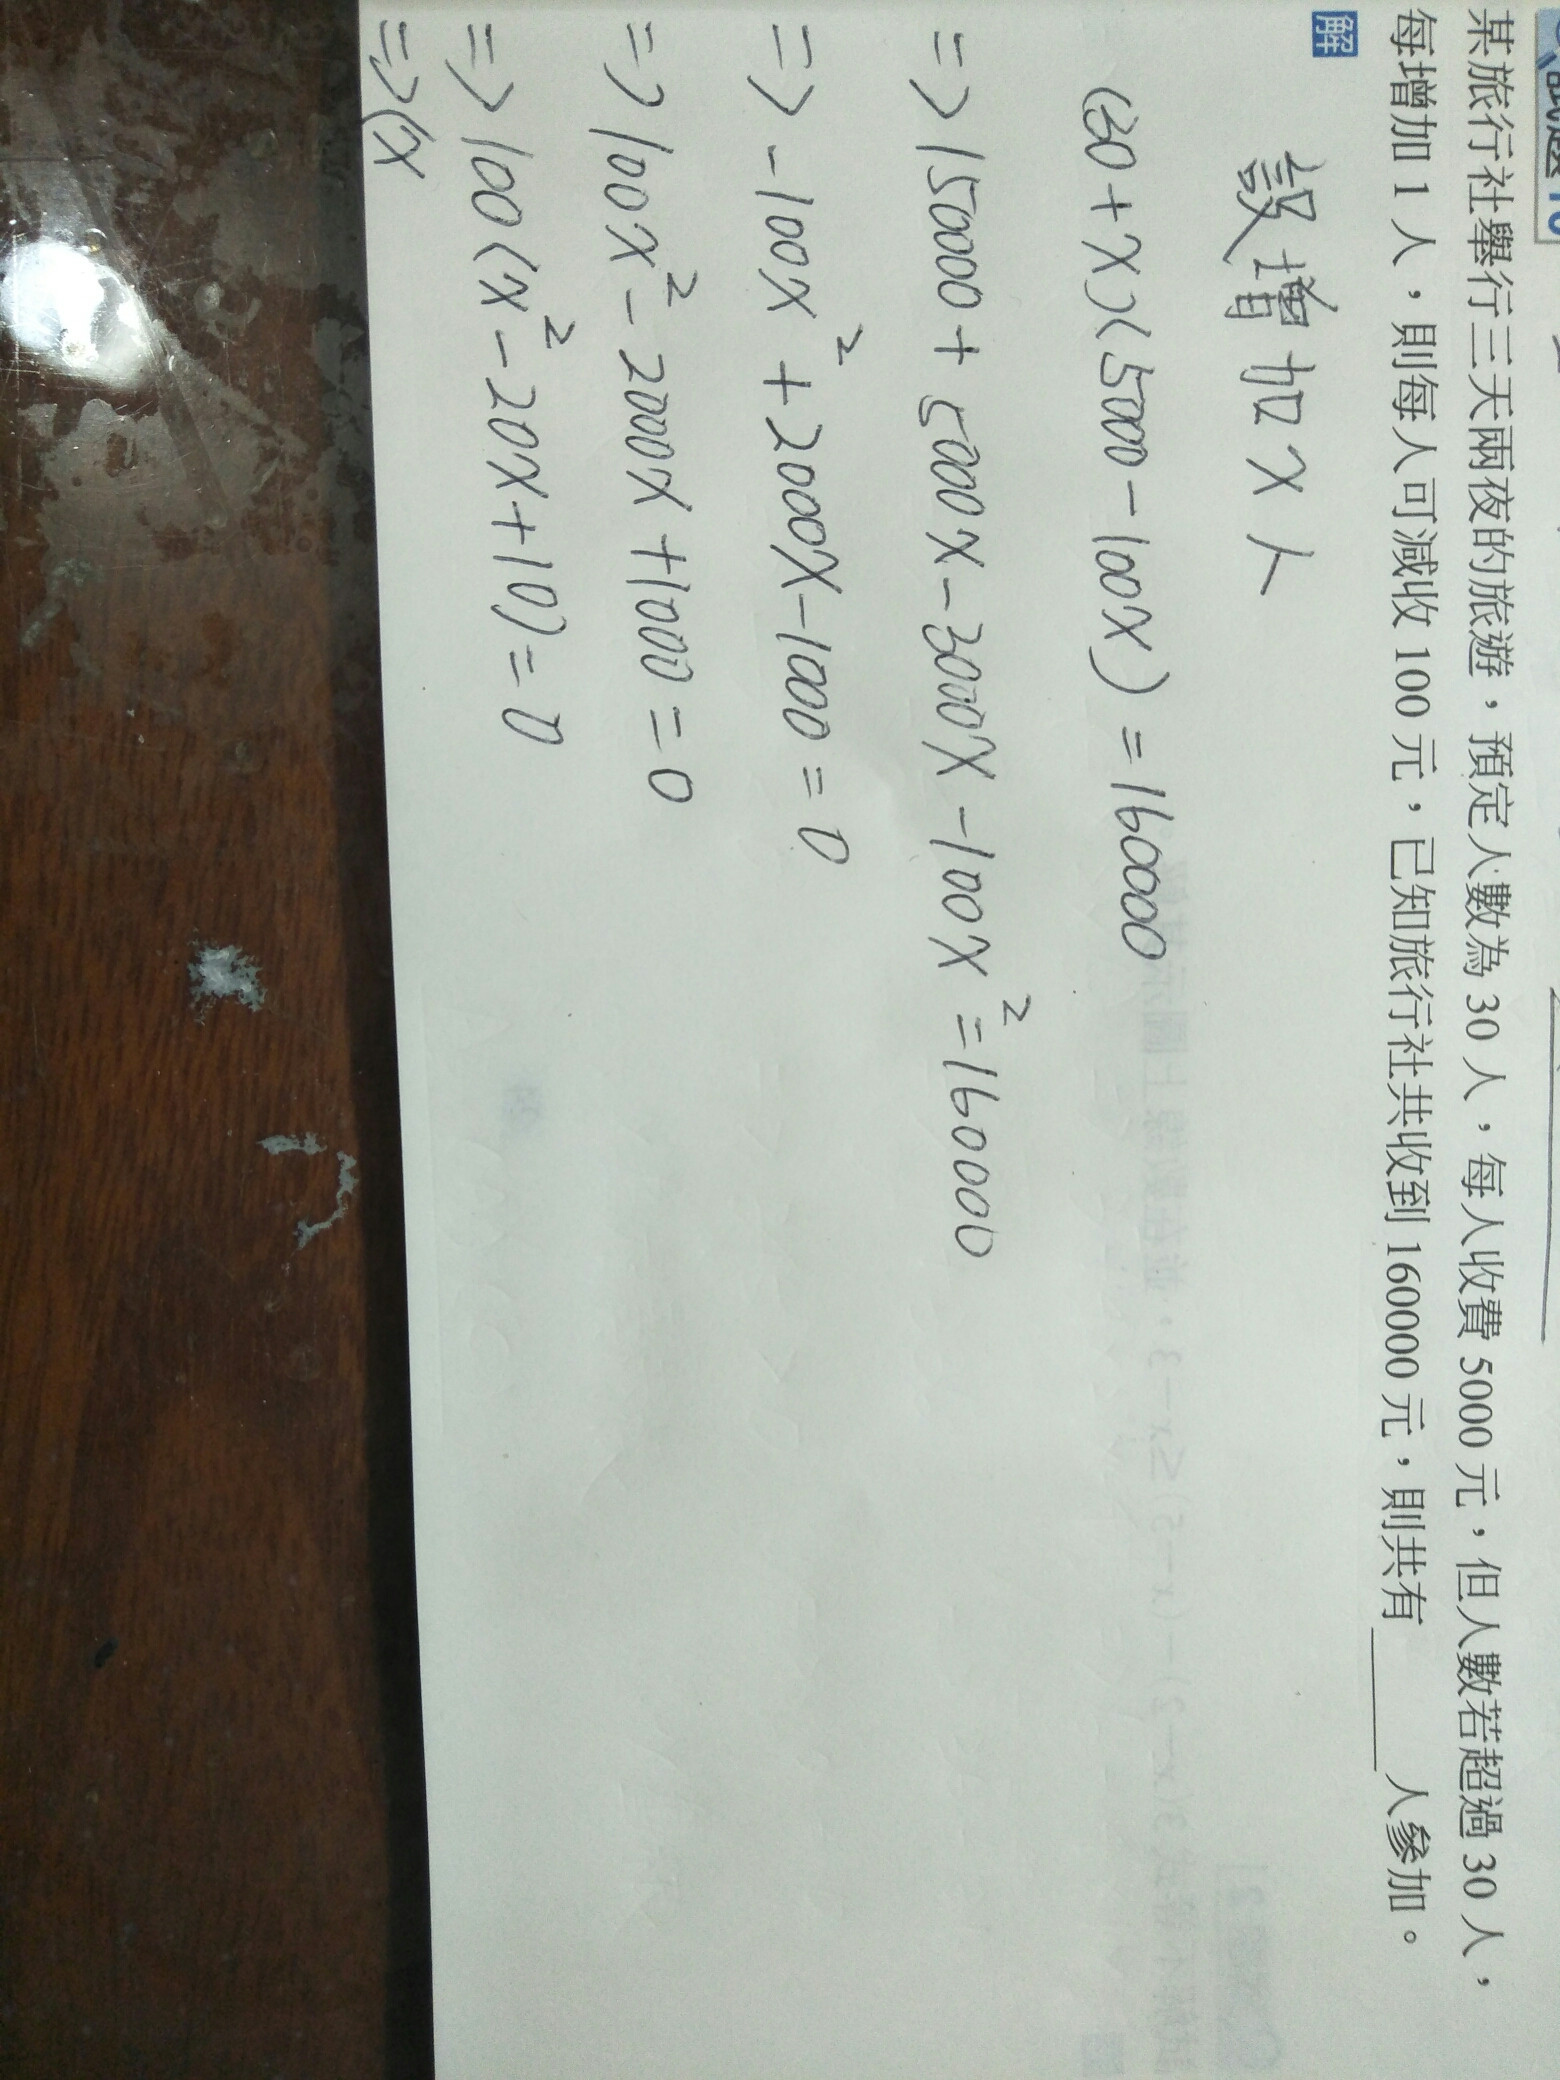 某旅行社舉行三天兩夜的旅遊，預定人數為 30 人，每人收費 5000 元，但人數若超過 30 人，
每增加 1 人，則每人可減收 100 元，已知旅行社共收到 160000 元，則共有______人參加。
解
設增加x人
(30+x)(5000-100x)=160000
=>150000+5000x-3000x-100x²=160000
=>-100x²+2000x-1000=0
=>100x²-2000x+1000=0
=>100(x²-20x+10)=0
=>(x